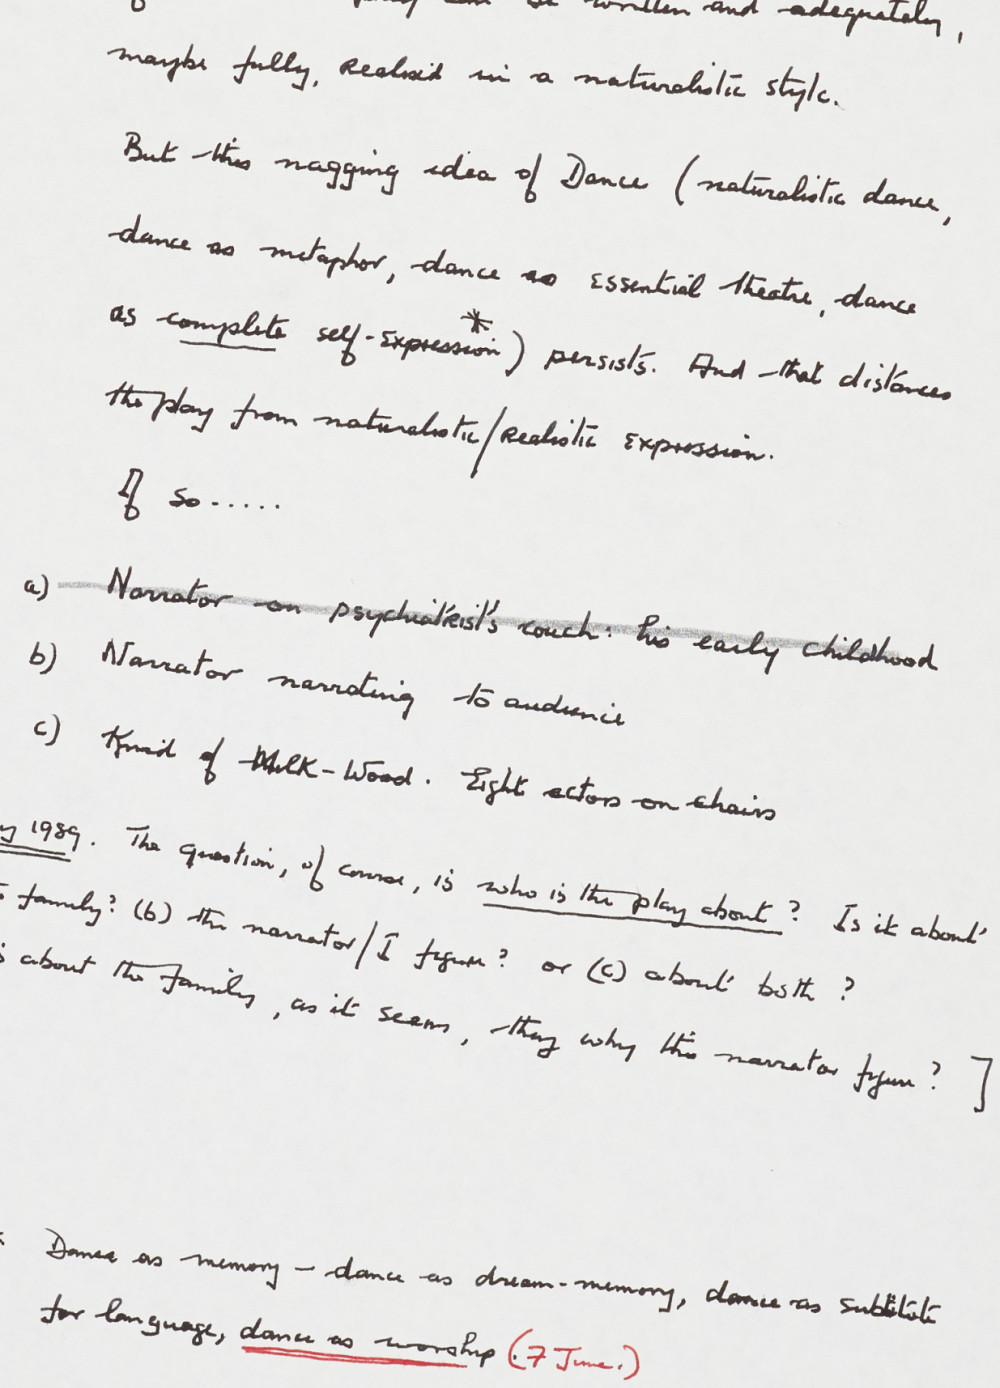 be written and adequately,
maybe fully, realised in a naturalistic style.
But this nagging idea of Dance (naturalistic dance,
dance as metaphor, dance as essential theatre, dance
as complete self-expression*) persists. And that distances
the play from naturalistic/realistic expression.
If so.....
a) Narrator on psychiatrist's couch: his early childhood
b) Narrator narrating to audience
c) Kind of Milk-Wood. Eight actors on chairs
y 1989. The question, of course, is who is the play about? Is it about
family? (b) the narrator/I figure? or (c) about both?
s about the family, as it seems, they why this narrator figure? ]
Dance as memory – dance as dream-memory, dance as substitute
for language, dance as worship (.7 June.)